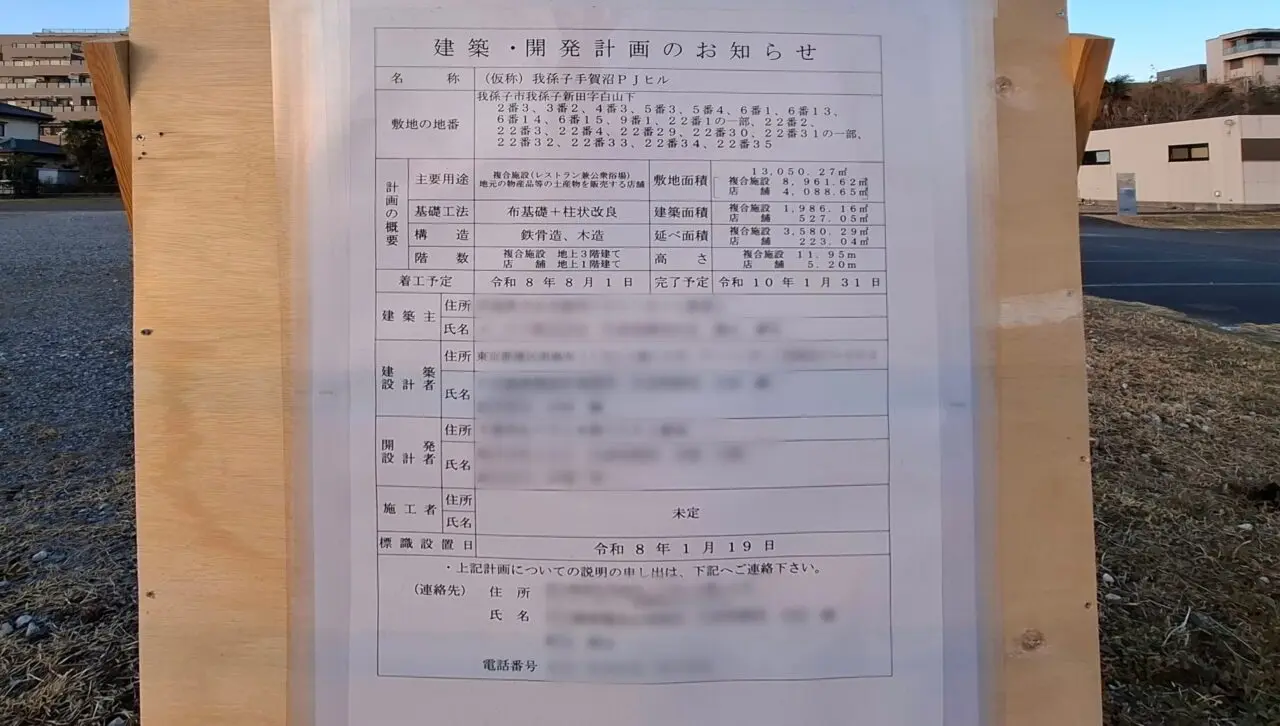 建築・開発計画のお知らせ
名称 (仮称)我孫子手賀沼PJヒル
敷地の地番 我孫子市我孫子新田字白山下
2番3、3番2、4番3、5番3、5番4、6番1、6番13、
6番14、6番15、9番1、22番1の一部、22番2、
22番3、22番4、22番29、22番30、22番31の一部、
22番32、22番33、22番34、22番35
計画の概要
主要用途 複合施設(レストラン兼公衆浴場)
地元の物産品等の土産物を販売する店舗
敷地面積 13,050.27㎡
複合施設 8,961.62㎡
店舗 4,088.65㎡
基礎工法 布基礎+柱状改良
建築面積 複合施設 1,986.16㎡
店舗 527.05㎡
構造 鉄骨造、木造
延べ面積 複合施設 3,580.29㎡
店舗 223.04㎡
階数 複合施設 地上3階建て
店舗 地上1階建て
高さ 複合施設 11.95m
店舗 5.20m
着工予定 令和8年8月1日 完了予定 令和10年1月31日
建築主 住所
氏名
建築設計者 住所 東京都
氏名
開発設計者 住所
氏名
施工者 住所 氏名 未定
標識設置日 令和8年1月19日
・上記計画についての説明の申し出は、下記へご連絡下さい。
(連絡先) 住所
氏名
電話番号